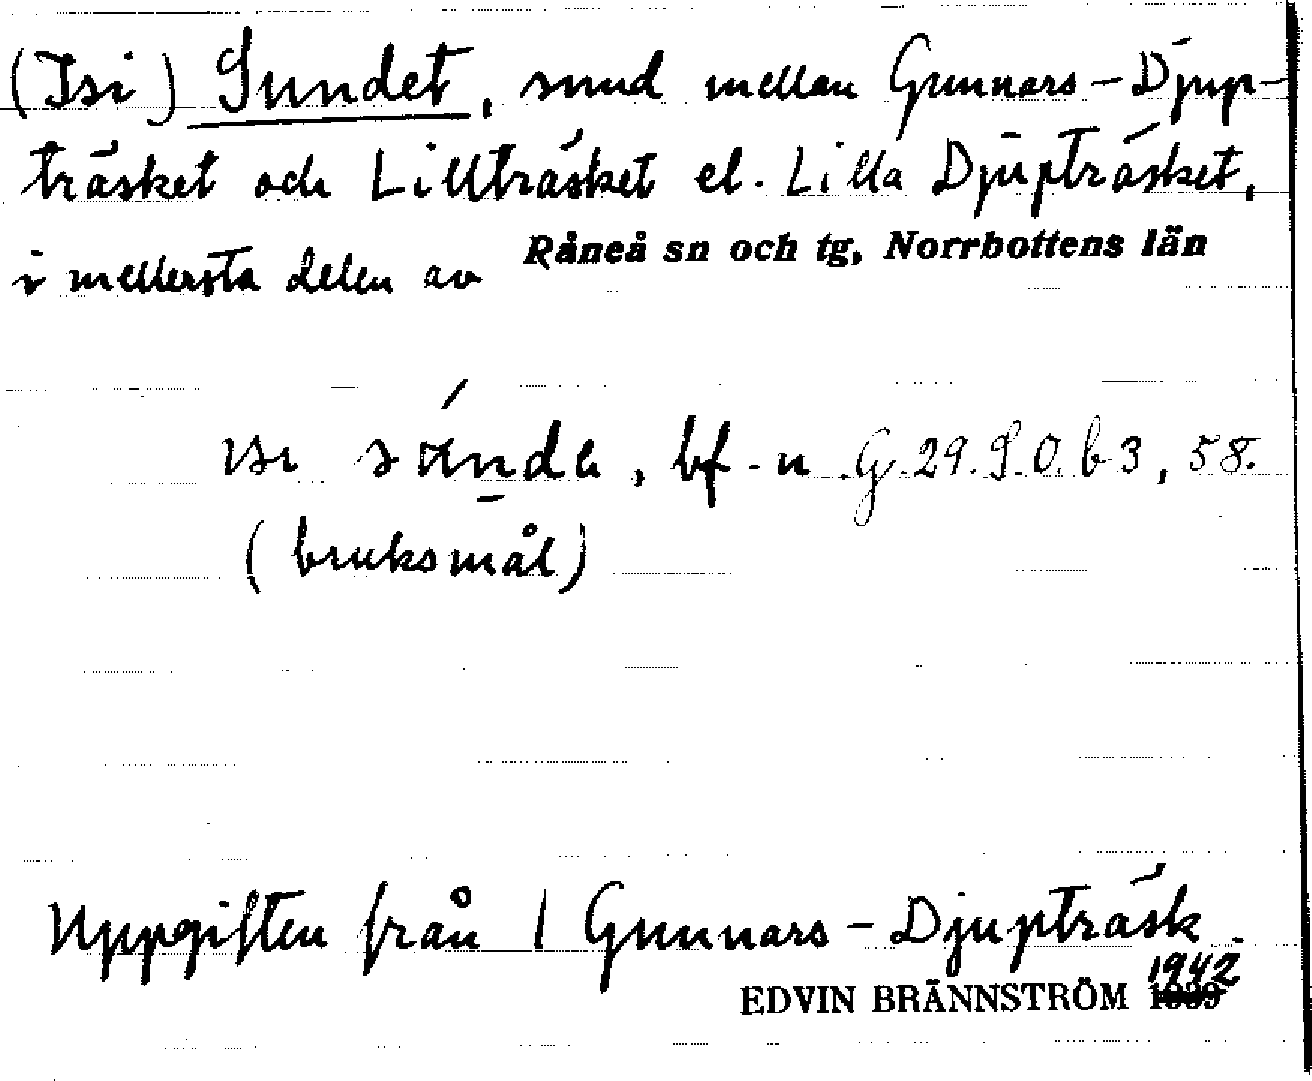 (Isi) Sundet, sund mellan Gunnars-Djup-
träsket och Lillträsket el. Lilla Djupträsket,
i mellersta delen av Råneå sn och tg, Norrbottens län
ısı sánda, bf. n G. 29. S. O. b 3, 58.
(bruksmål)
Uppgiften från 1 Gunnars-Djupträsk.
EDVIN BRÄNNSTRÖM 1942